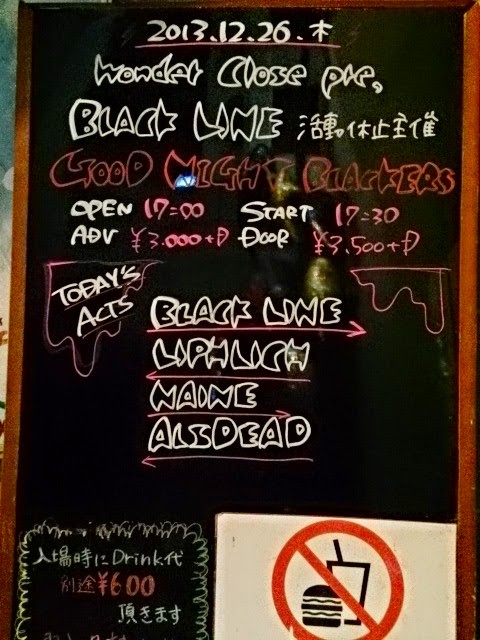 2013.12.26.木
Wonder Close pre,
BLACK LINE 活動休止主催
GOOD NIGHT BLACKERS
OPEN 17:00 START 17:30
ADV ¥3.000+D DOOR ¥3.500+D
TODAY'S
ACTS
BLACK LINE
LIPHLICH
NAINE
ALSDEAD
入場時にDrink代
別途¥600
頂きます